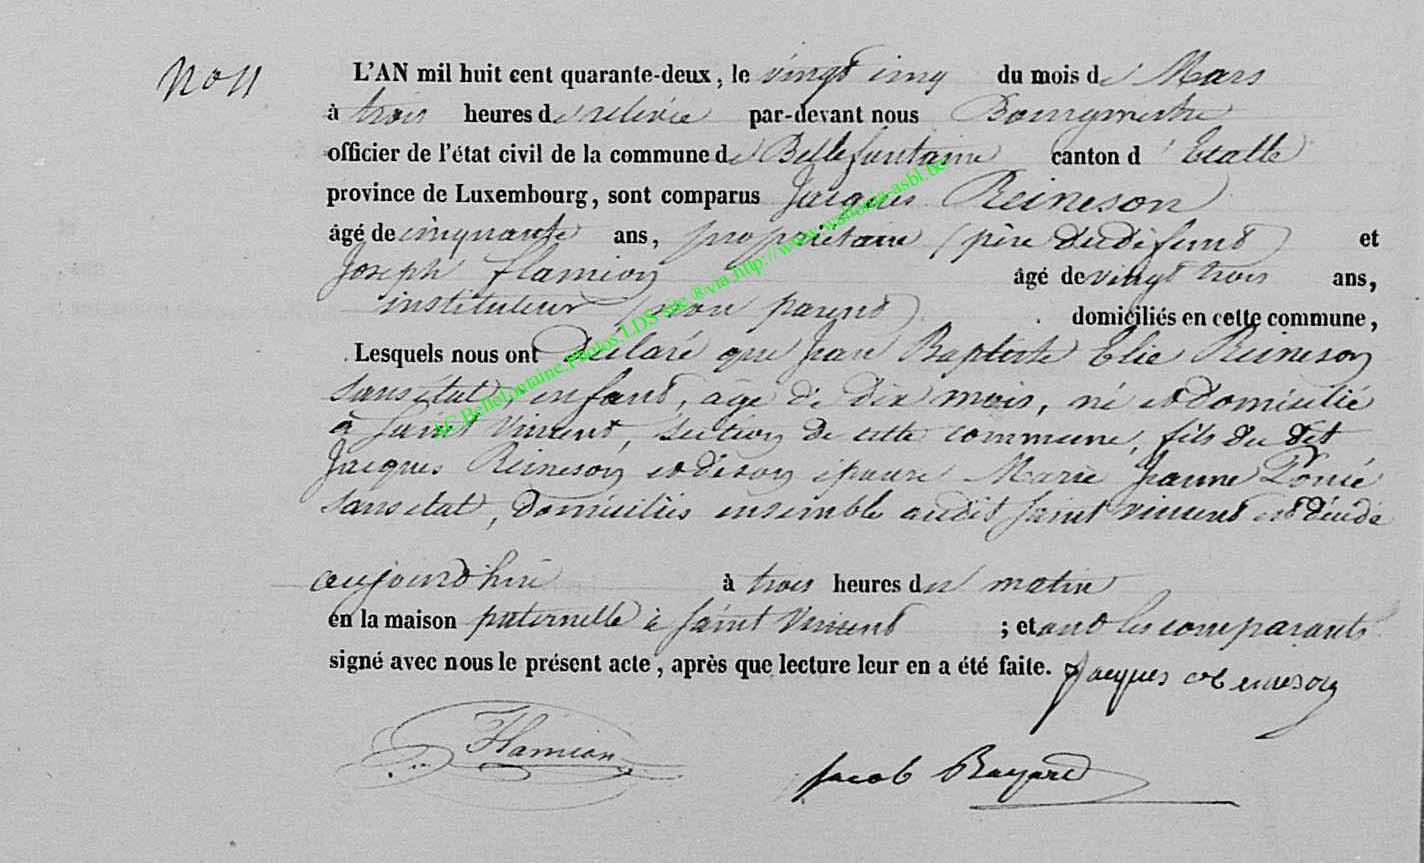 N° 11
L'AN mil huit cent quarante-deux, le vingt cinq du mois de Mars
à trois heures de relevée par-devant nous Bourgmestre
officier de l'état civil de la commune de Bellefontaine canton d'Etalle
province de Luxembourg, sont comparus Jacques Reineson
âgé de cinquante ans, propriétaire (père du défunt) et
Joseph Flamion âgé de vingt trois ans,
instituteur (son parent) domiciliés en cette commune,
Lesquels nous ont déclaré que Jean Baptiste Elie Reineson
sans état, enfant, agé de dix mois, né et domicilié
à Saint Vincent, section de cette commune, fils du dit
Jacques Reineson et de son épouse Marie Jeanne Poncé
sans état, domiciliés ensemble audit Saint Vincent est décédé
aujourd'hui à trois heures du matin
en la maison paternelle à Saint Vincent ; et ont les comparants
signé avec nous le présent acte, après que lecture leur en a été faite. Jacques Reineson
Flamion
Jacob Bayard
AC.Bellefontaine.Photos.LDS site ®via http://www.wallonia-asbl.be/